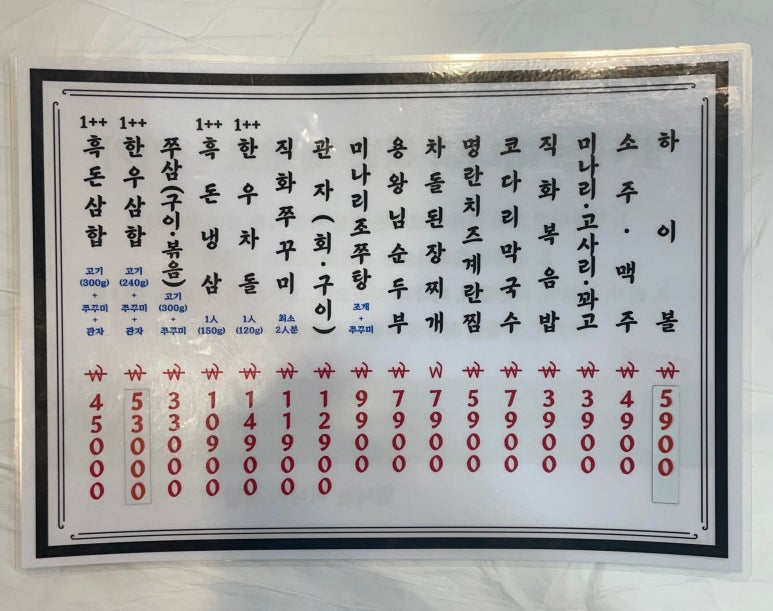 1++ 흑돈삼합 고기 (300g) + 쭈꾸미 + 관자 ₩ 45000
1++ 한우삼합 고기 (240g) + 쭈꾸미 + 관자 ₩ 53000
쭈삼(구이·볶음) 고기 (300g) + 쭈꾸미 ₩ 33000
1++ 흑돈냉삼 1人 (150g) ₩ 10900
1++ 한우차돌 1人 (120g) ₩ 14900
직화쭈꾸미 최소 2人분 ₩ 11900
관자(회·구이) ₩ 12900
미나리조쭈탕 조개 + 쭈꾸미 ₩ 9900
용왕님순두부 ₩ 7900
차돌된장찌개 ₩ 7900
명란치즈계란찜 ₩ 5900
코다리막국수 ₩ 7900
직화볶음밥 ₩ 3900
미나리·고사리·꽈고 ₩ 3900
소주·맥주 ₩ 4900
하이볼 ₩ 5900